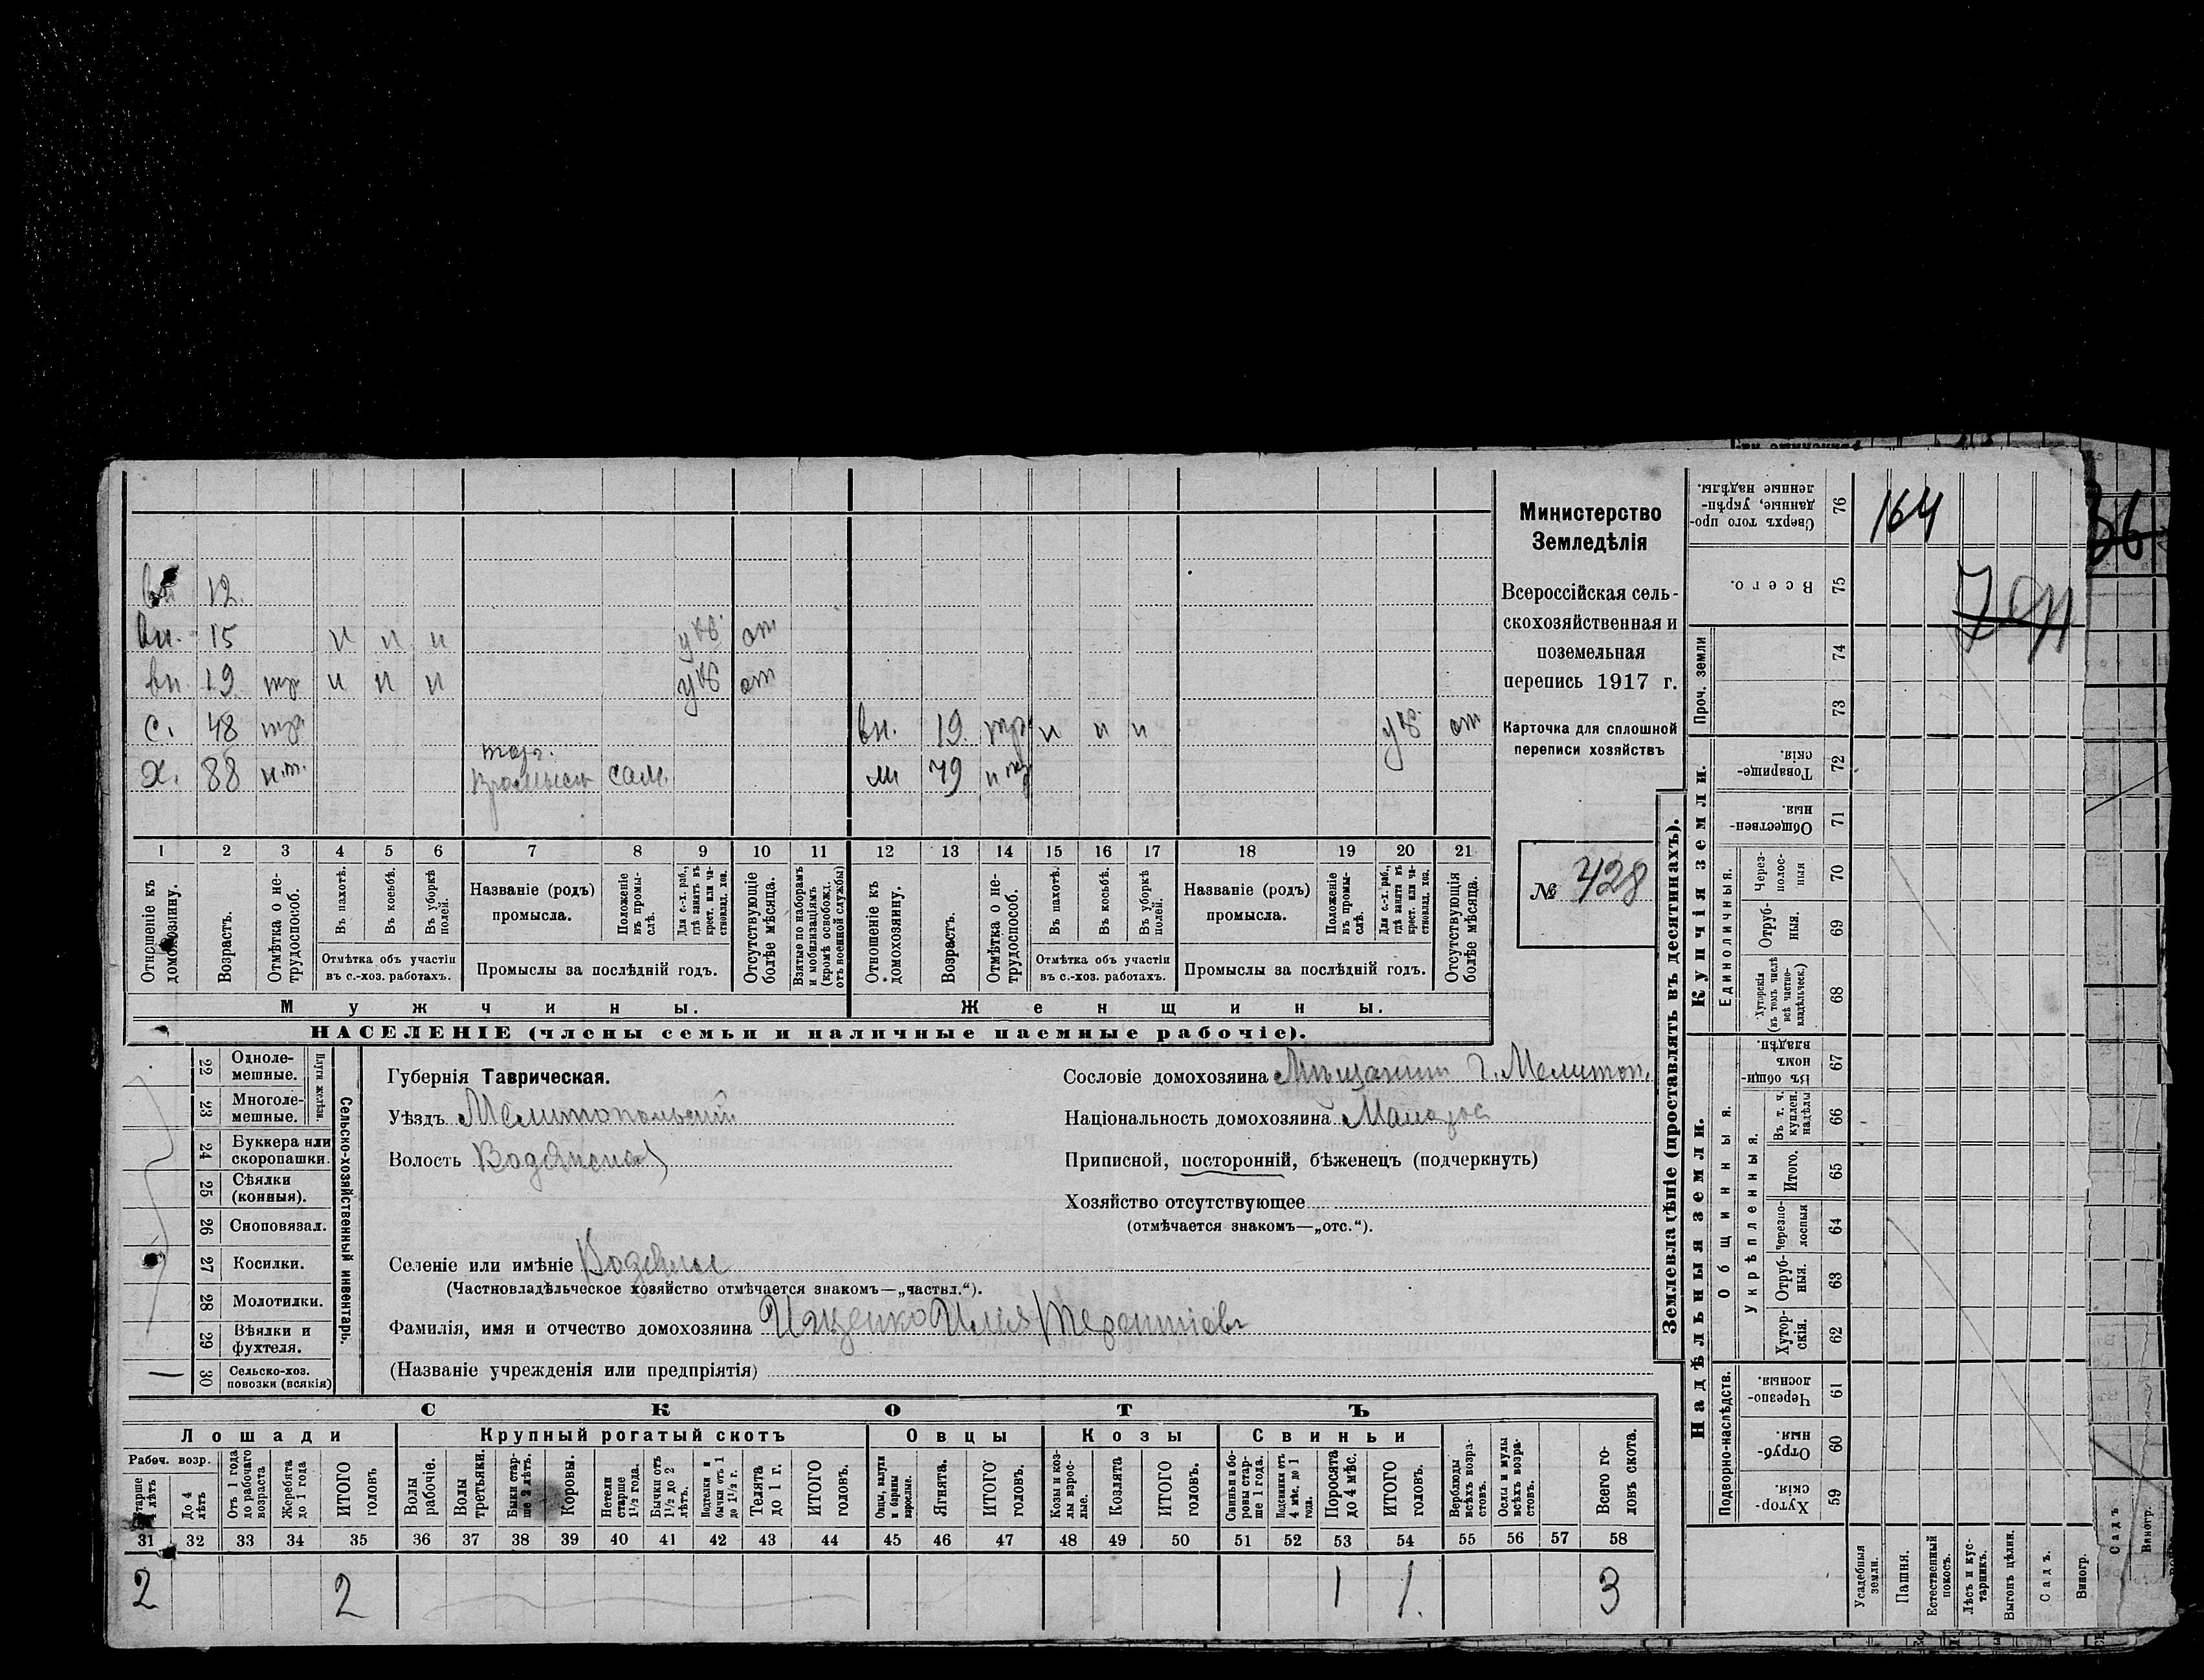 164
36
вн 12
вн. 15 и и и ув. от
вн 19 тр и и и ув от
с. 48 тр. вн. 19 тр. и и и ув. от
торг.
х. 88 н.т. сам. м 79 н тр
1 2 3 4 5 6 7 8 9 10 11 12 13 14 15 16 17 18 19 20 21
Отношеніе къ домохозяину.
Возрастъ.
Отмѣтка о не-
трудоспособ.
Въ пахотѣ.
Въ косьбѣ.
Въ уборкѣ
полей.
Отмѣтка объ участіи
въ с.-хоз. работахъ.
Названіе (родъ)
промысла.
Положеніе
въ промы-
слѣ.
Для с.-х. раб.,
гдѣ занятъ въ
крест. или ча-
стновлад. хоз.
Промыслы за послѣдній годъ.
Отсутствующіе
болѣе мѣсяца.
Взятые по наборамъ
и мобилизаціямъ
(кромѣ освобожд.
отъ военной службы)
Отношеніе къ
домохозяину.
Возрастъ.
Отмѣтка о не-
трудоспособ.
Въ пахотѣ.
Въ косьбѣ.
Въ уборкѣ
полей.
Отмѣтка объ участіи
въ с.-хоз. работахъ.
Названіе (родъ)
промысла.
Положеніе
въ промы-
слѣ.
Для с.-х. раб.,
гдѣ занята въ
крест. или ча-
стновлад. хоз.
Промыслы за послѣдній годъ.
Отсутствующія
болѣе мѣсяца.
Мужчины. Женщины.
НАСЕЛЕНІЕ (члены семьи и наличные наемные рабочіе).
Министерство
Земледѣлія
Всероссійская сель-
скохозяйственная и
поземельная
перепись 1917 г.
Карточка для сплошной
переписи хозяйствъ
№ 428
22 Одноле-
мешные.
23 Многоле-
мешные.
Плуги желѣзн.
24 Буккера или
скоропашки.
25 Сѣялки
(конныя).
26 Сноповязал.
27 Косилки.
28 Молотилки.
29 Вѣялки и
фухтеля.
30 Сельско-хоз.
повозки (всякія)
Сельско-хозяйственный инвентарь.
Губернія Таврическая.
Уѣздъ Мелитопольскій
Волость Водянская
Селеніе или имѣніе Водяное
(Частновладѣльческое хозяйство отмѣчается знакомъ—„частвл.“).
Фамилія, имя и отчество домохозяина Ищенко Илья Терентіевъ
(Названіе учрежденія или предпріятія)
Сословіе домохозяина Мѣщанинъ г. Мелитоп.
Національность домохозяина Малорос
Приписной, посторонній, бѣженецъ (подчеркнуть)
Хозяйство отсутствующее
(отмѣчается знакомъ—„отс.“).
СКОТЪ
Лошади Крупный рогатый скотъ Овцы Козы Свиньи
Рабоч. возр.
Старше
4 лѣтъ
До 4
лѣтъ
Отъ 1 года
до рабочаго
возраста
Жеребята
до 1 года
ИТОГО
головъ
Волы
рабочіе.
Волы
третьяки.
Быки стар-
ше 2 лѣтъ.
Коровы.
Нетели
старше
1½ года.
Бычки отъ
1½ до 2
лѣтъ.
Подтелки и
бычки отъ 1
до 1½ г.
Телята
до 1 г.
ИТОГО
головъ.
Овцы, валухи
и бараны
взрослые.
Ягнята.
ИТОГО
головъ.
Козы и коз-
лы взрос-
лые.
Козлята
ИТОГО
головъ.
Свиньи и бо-
ровы стар-
ше 1 года.
Подсвинки отъ
4 мѣс. до 1
года.
Поросята
до 4 мѣс.
ИТОГО
головъ.
Верблюды
всѣхъ возра-
стовъ.
Ослы и мулы
всѣхъ возра-
стовъ.
Всего го-
ловъ скота.
31 32 33 34 35 36 37 38 39 40 41 42 43 44 45 46 47 48 49 50 51 52 53 54 55 56 57 58
2 2 1 1. 3
Землевладѣніе (проставлять въ десятинахъ).
Надѣльныя земли. Купчія земли. Проч. земли
Подворно-наслѣдств. Общинныя. Единоличныя.
Укрѣпленныя.
Хутор-
скія. 59
Отруб-
ныя. 60
Черезпо-
лосныя. 61
Хутор-
скія. 62
Отруб-
ныя. 63
Черезпо-
лосныя 64
Итого. 65
Въ т. ч.
куплен.
надѣлы 66
Въ общин-
номъ
владѣн. 67
Хуторскія
(въ томъ числѣ
всѣ частно-
владѣльческ.) 68
Отруб-
ныя. 69
Через-
полос-
ныя 70
Обществен-
ныя. 71
Товарище-
скія. 72
73
74
Всего. 75
Сверхъ того про-
данные, укрѣп-
ленные надѣлы. 76
Усадебныя
земли.
Пашня.
Естественный
покосъ.
Лѣсъ и кус-
тарникъ.
Выгонъ цѣлин.
Садъ.
Виногр.
Садъ
Виногр.